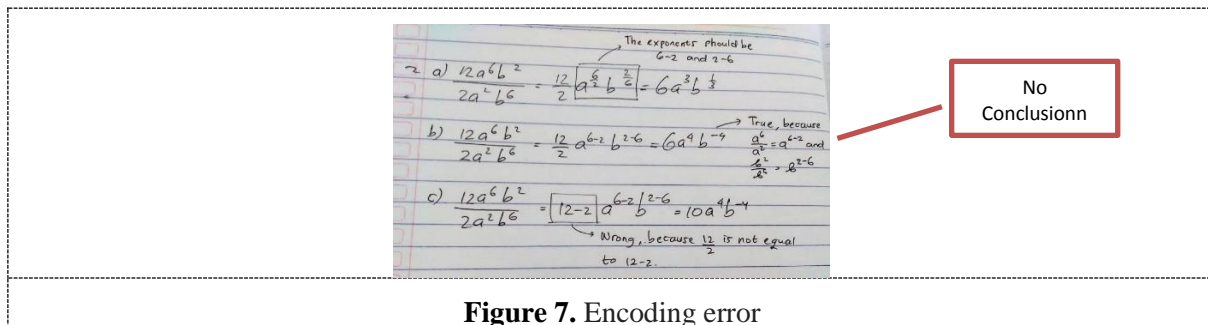 The exponents should be
6-2 and 2-6
2 a) \frac{12a^6b^2}{2a^2b^6} = \frac{12}{2} a^{\frac{6}{2}} b^{\frac{2}{6}} = 6a^3b^{\frac{1}{3}}
No
Conclusionn
b) \frac{12a^6b^2}{2a^2b^6} = \frac{12}{2} a^{6-2} b^{2-6} = 6a^4b^{-4}
True, because
\frac{a^6}{a^2} = a^{6-2} and
\frac{b^2}{b^6} = b^{2-6}
c) \frac{12a^6b^2}{2a^2b^6} = 12-2 a^{6-2} b^{2-6} = 10a^4b^{-4}
Wrong, because \frac{12}{2} is not equal
to 12-2.
Figure 7. Encoding error